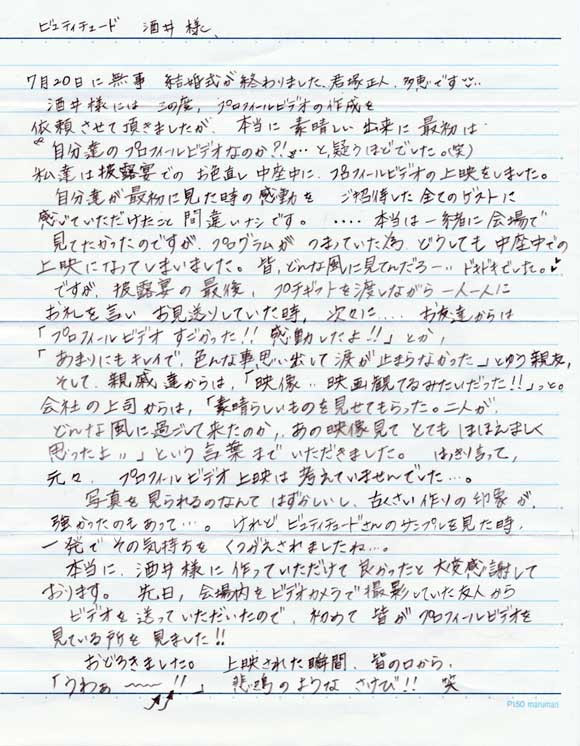 ビュティチュード 酒井 様、
7月20日に無事 結婚式が終わりました、君塚正人、多恵です
酒井様には この度、プロフィールビデオの作成を
依頼させて頂きましたが、本当に 素晴しい出来に最初は
"自分達のプロフィールビデオなのか?!"… と、疑うほどでした。(笑)
私達は披露宴での お色直し中座中に、プロフィールビデオの上映をしました。
自分達が最初に見た時の感動を ご招待した全てのゲストに
感じていただけたこと 間違いナシです。 ‥‥本当は一緒に会場で
見てたかったのですが、プログラムが つまっていた為、どうしても 中座中での
上映になってしまいました。皆、どんな風に見てんだろー‥ ドキドキでした。
ですが、披露宴の最後、プチギフトを渡しながら一人一人に
お礼を言い お見送りしていた時、次々に‥‥ お友達からは
「プロフィールビデオ すごかった!! 感動したよ!!」とか、
「あまりにもキレイで、色んな事思い出して涙が止まらなかった」とゆう親友、
そして、親戚達からは、「映像‥映画観てるみたいだった!!」っと。
会社の上司からは、「素晴らしいものを見せてもらった。二人が、
どんな風に過ごして来たのか、あの映像見て とてもほほえましく
思ったよ」という言葉まで いただきました。 はっきり言って、
元々、プロフィールビデオ上映は考えていませんでした…。
写真を見られるのなんて はずかしいし、古くさい作りの印象が、
強かったのもあって…。けれど、ビュティチュードさんのサンプルを見た時、
一発で その気持ちを くつがえされましたね…。
本当に、酒井様に作っていただけて 良かったと 大変感謝して
おります。 先日、会場内をビデオカメラで撮影していた友人から
ビデオを送っていただいたので、初めて 皆がプロフィールビデオを
見ている所を見ました!!
おどろきました。 上映された瞬間、皆の口から、
「うわぁ〜〜!!」 悲鳴のような さけび!! 笑
P150 maruman